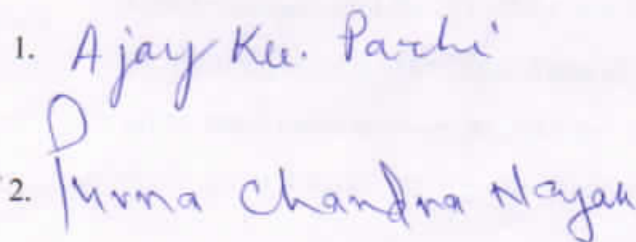 1. Ajay Ku. Parhi
2. Purna Chandra Nayak